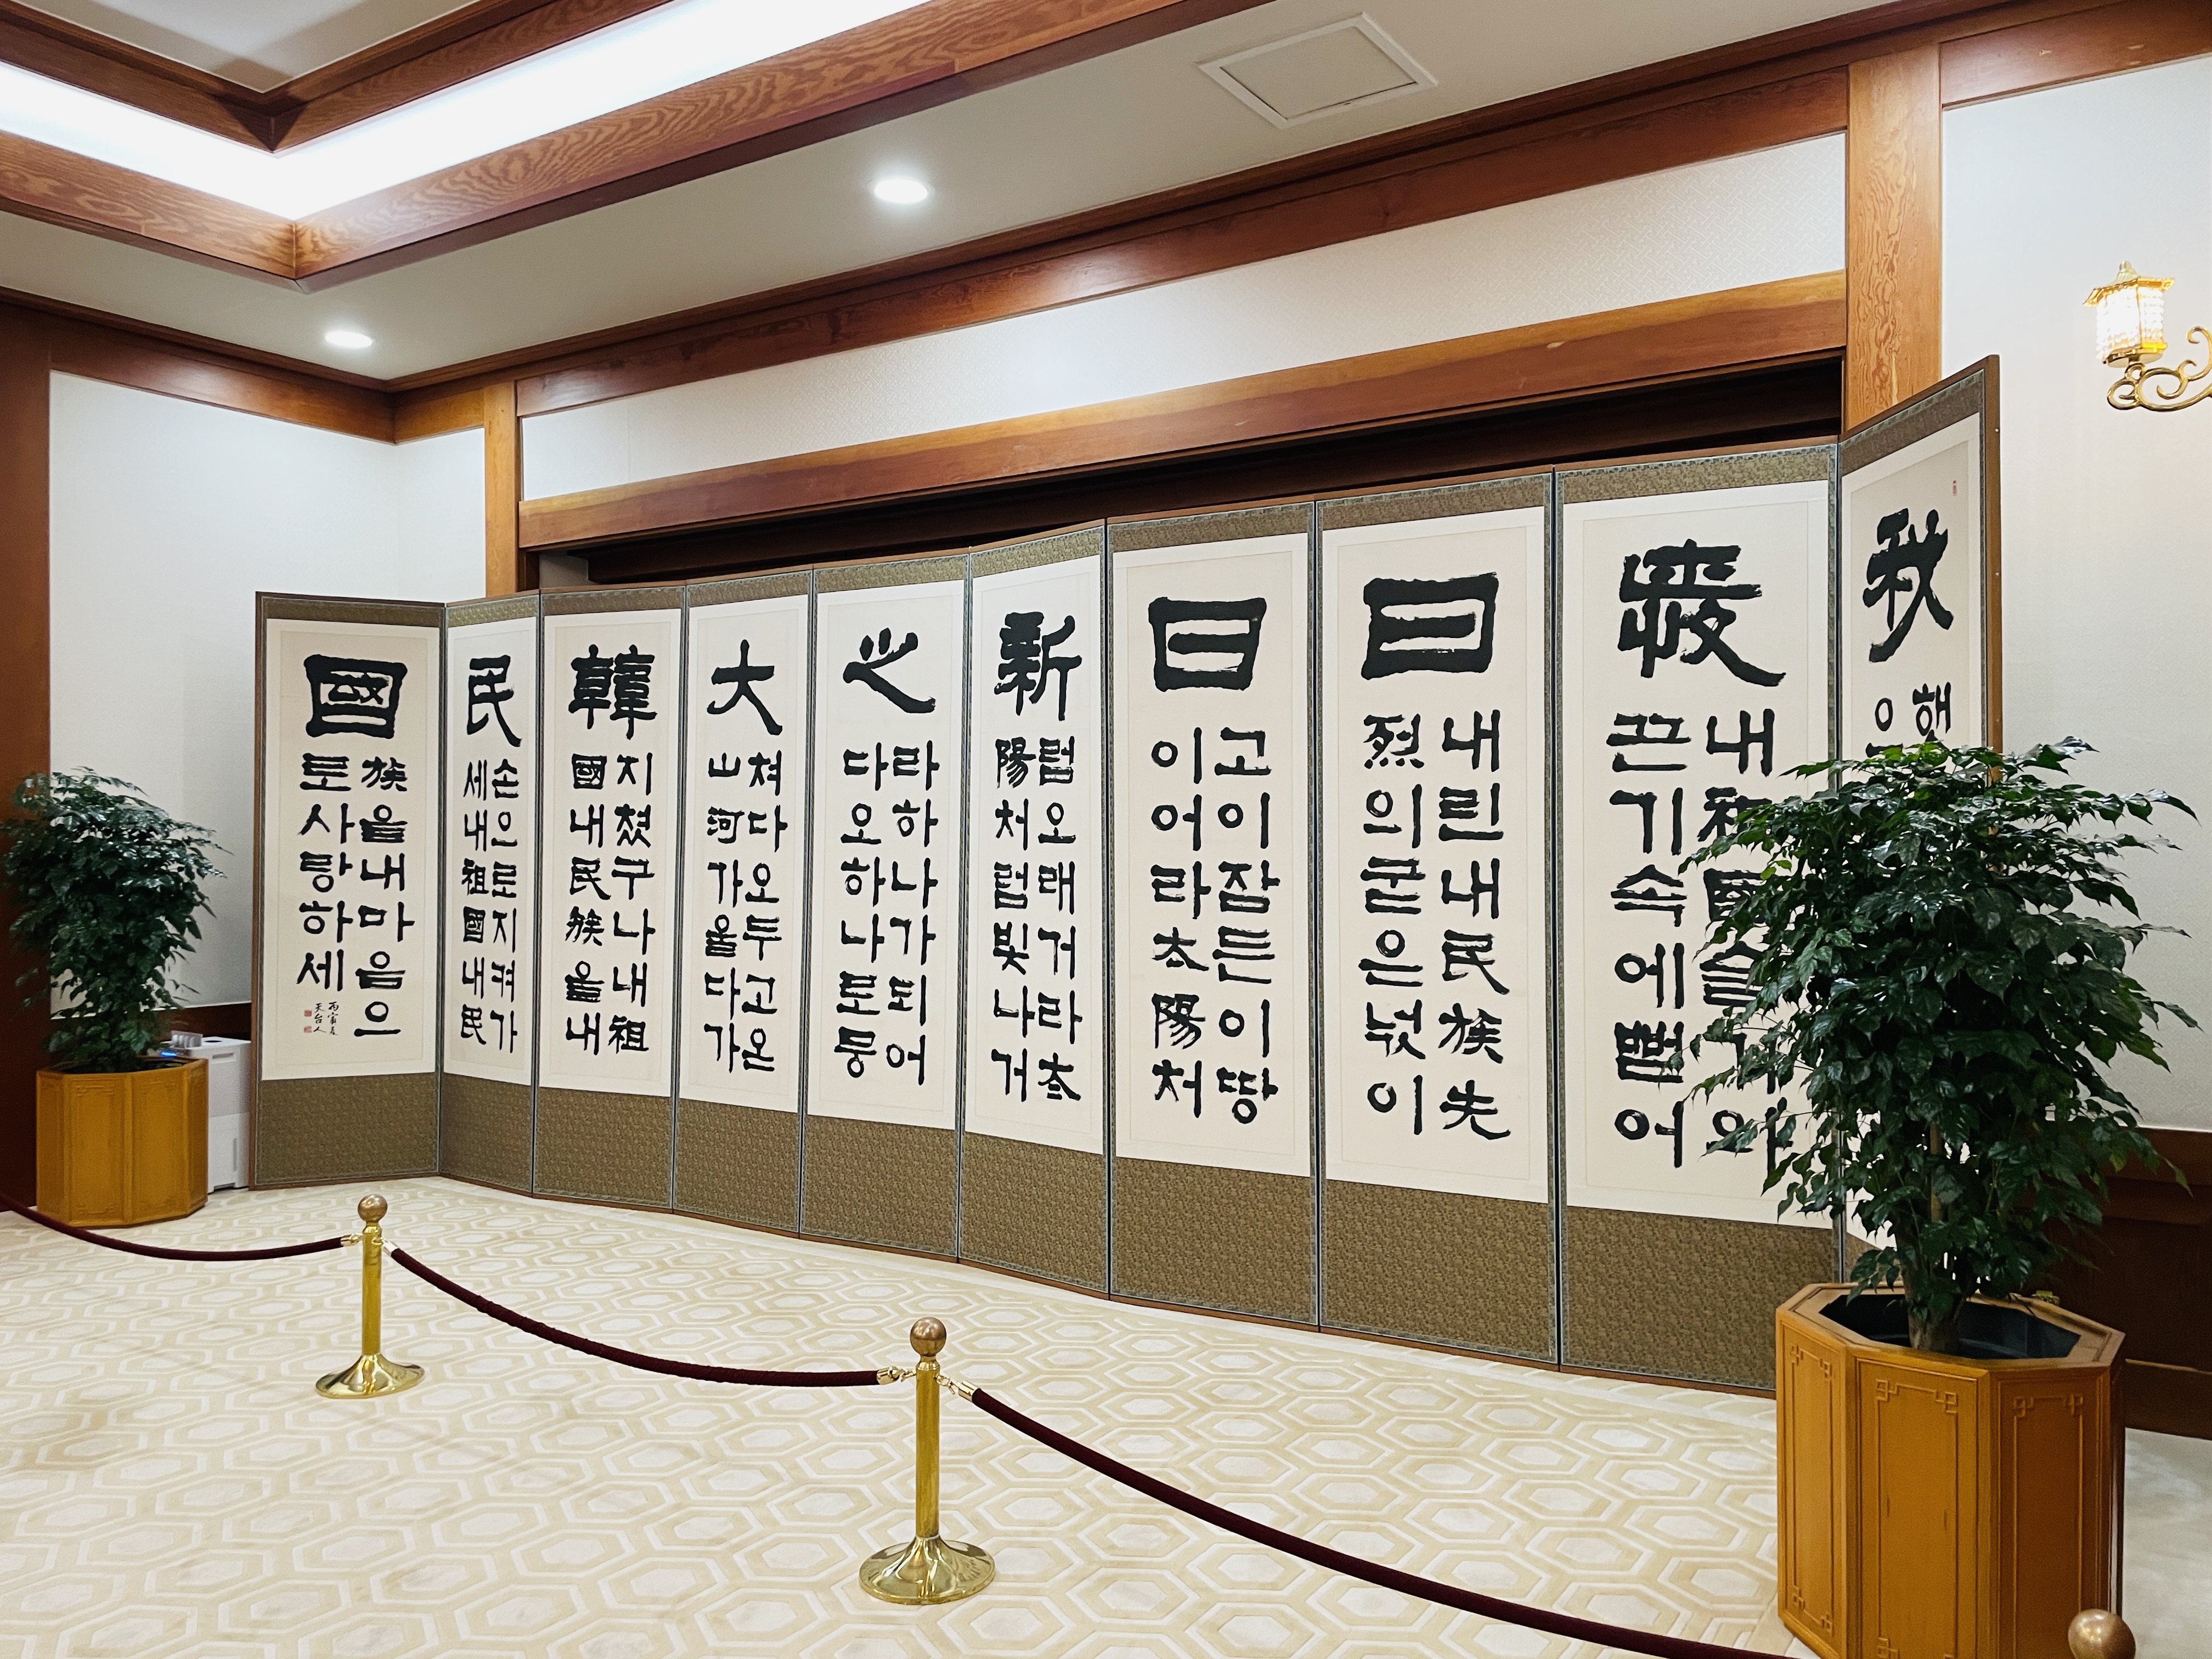 我
햇
愛
내祖國슬기와
끈기속에뻗어
日
내린내民族先
烈의굳은넋이
日
고이잠든이땅
이어라太陽처
新
럼오래거라太
陽처럼빛나거
之
라하나가되어
다오하나로뭉
大
쳐다오두고온
山河가을다가
韓
지쳤구나내祖
國내民族을내
民
손으로지켜가
세내祖國내民
國
族을내마음으
로사랑하세